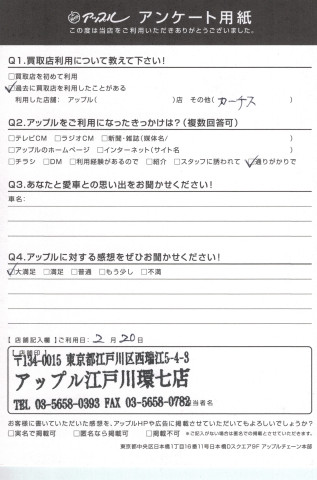 アップル アンケート用紙
この度は当店をご利用いただきありがとうございました。
Q1.買取店利用について教えて下さい!
□買取店を初めて利用
☑過去に買取店を利用したことがある
利用した店舗: アップル( )店 その他( カーチス )
Q2.アップルをご利用になったきっかけは?(複数回答可)
□テレビCM □ラジオCM □新聞・雑誌(媒体名/ )
□アップルのホームページ □インターネット(サイト名 )
□チラシ □DM □利用経験があるので □紹介 □スタッフに誘われて ☑通りがかりで
Q3.あなたと愛車との思い出をお聞かせください!
車名:
Q4.アップルに対する感想をぜひお聞かせください!
☑大満足 □満足 □普通 □もう少し □不満
【店舗記入欄】ご利用日: 2 月 20 日
【店舗印】
〒134-0015 東京都江戸川区西瑞江5-4-3
アップル江戸川環七店
TEL 03-5658-0393 FAX 03-5658-0782
当者名
お客様に書いていただいた感想を、アップルHPや広告に掲載させていただいてもよろしいでしょうか?
□実名で掲載可 □匿名なら掲載可 □掲載不可 ※ご記入がない場合は匿名での掲載とさせていただきます。
東京都中央区日本橋1丁目16番11号日本橋Dスクエア9F アップルチェーン本部